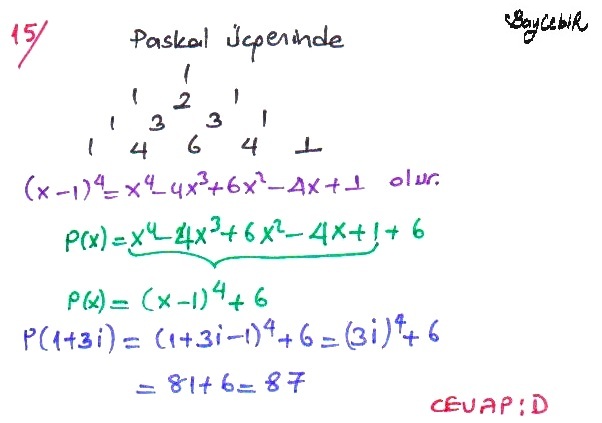 15/ Paskal Üçgeninde BayCebiR
1
1 2 1
1 3 3 1
1 4 6 4 1
(x-1)⁴=x⁴-4x³+6x²-4x+1 olur.
P(x)=x⁴-4x³+6x²-4x+1+6
P(x)=(x-1)⁴+6
P(1+3i)=(1+3i-1)⁴+6=(3i)⁴+6
=81+6=87
CEVAP:D